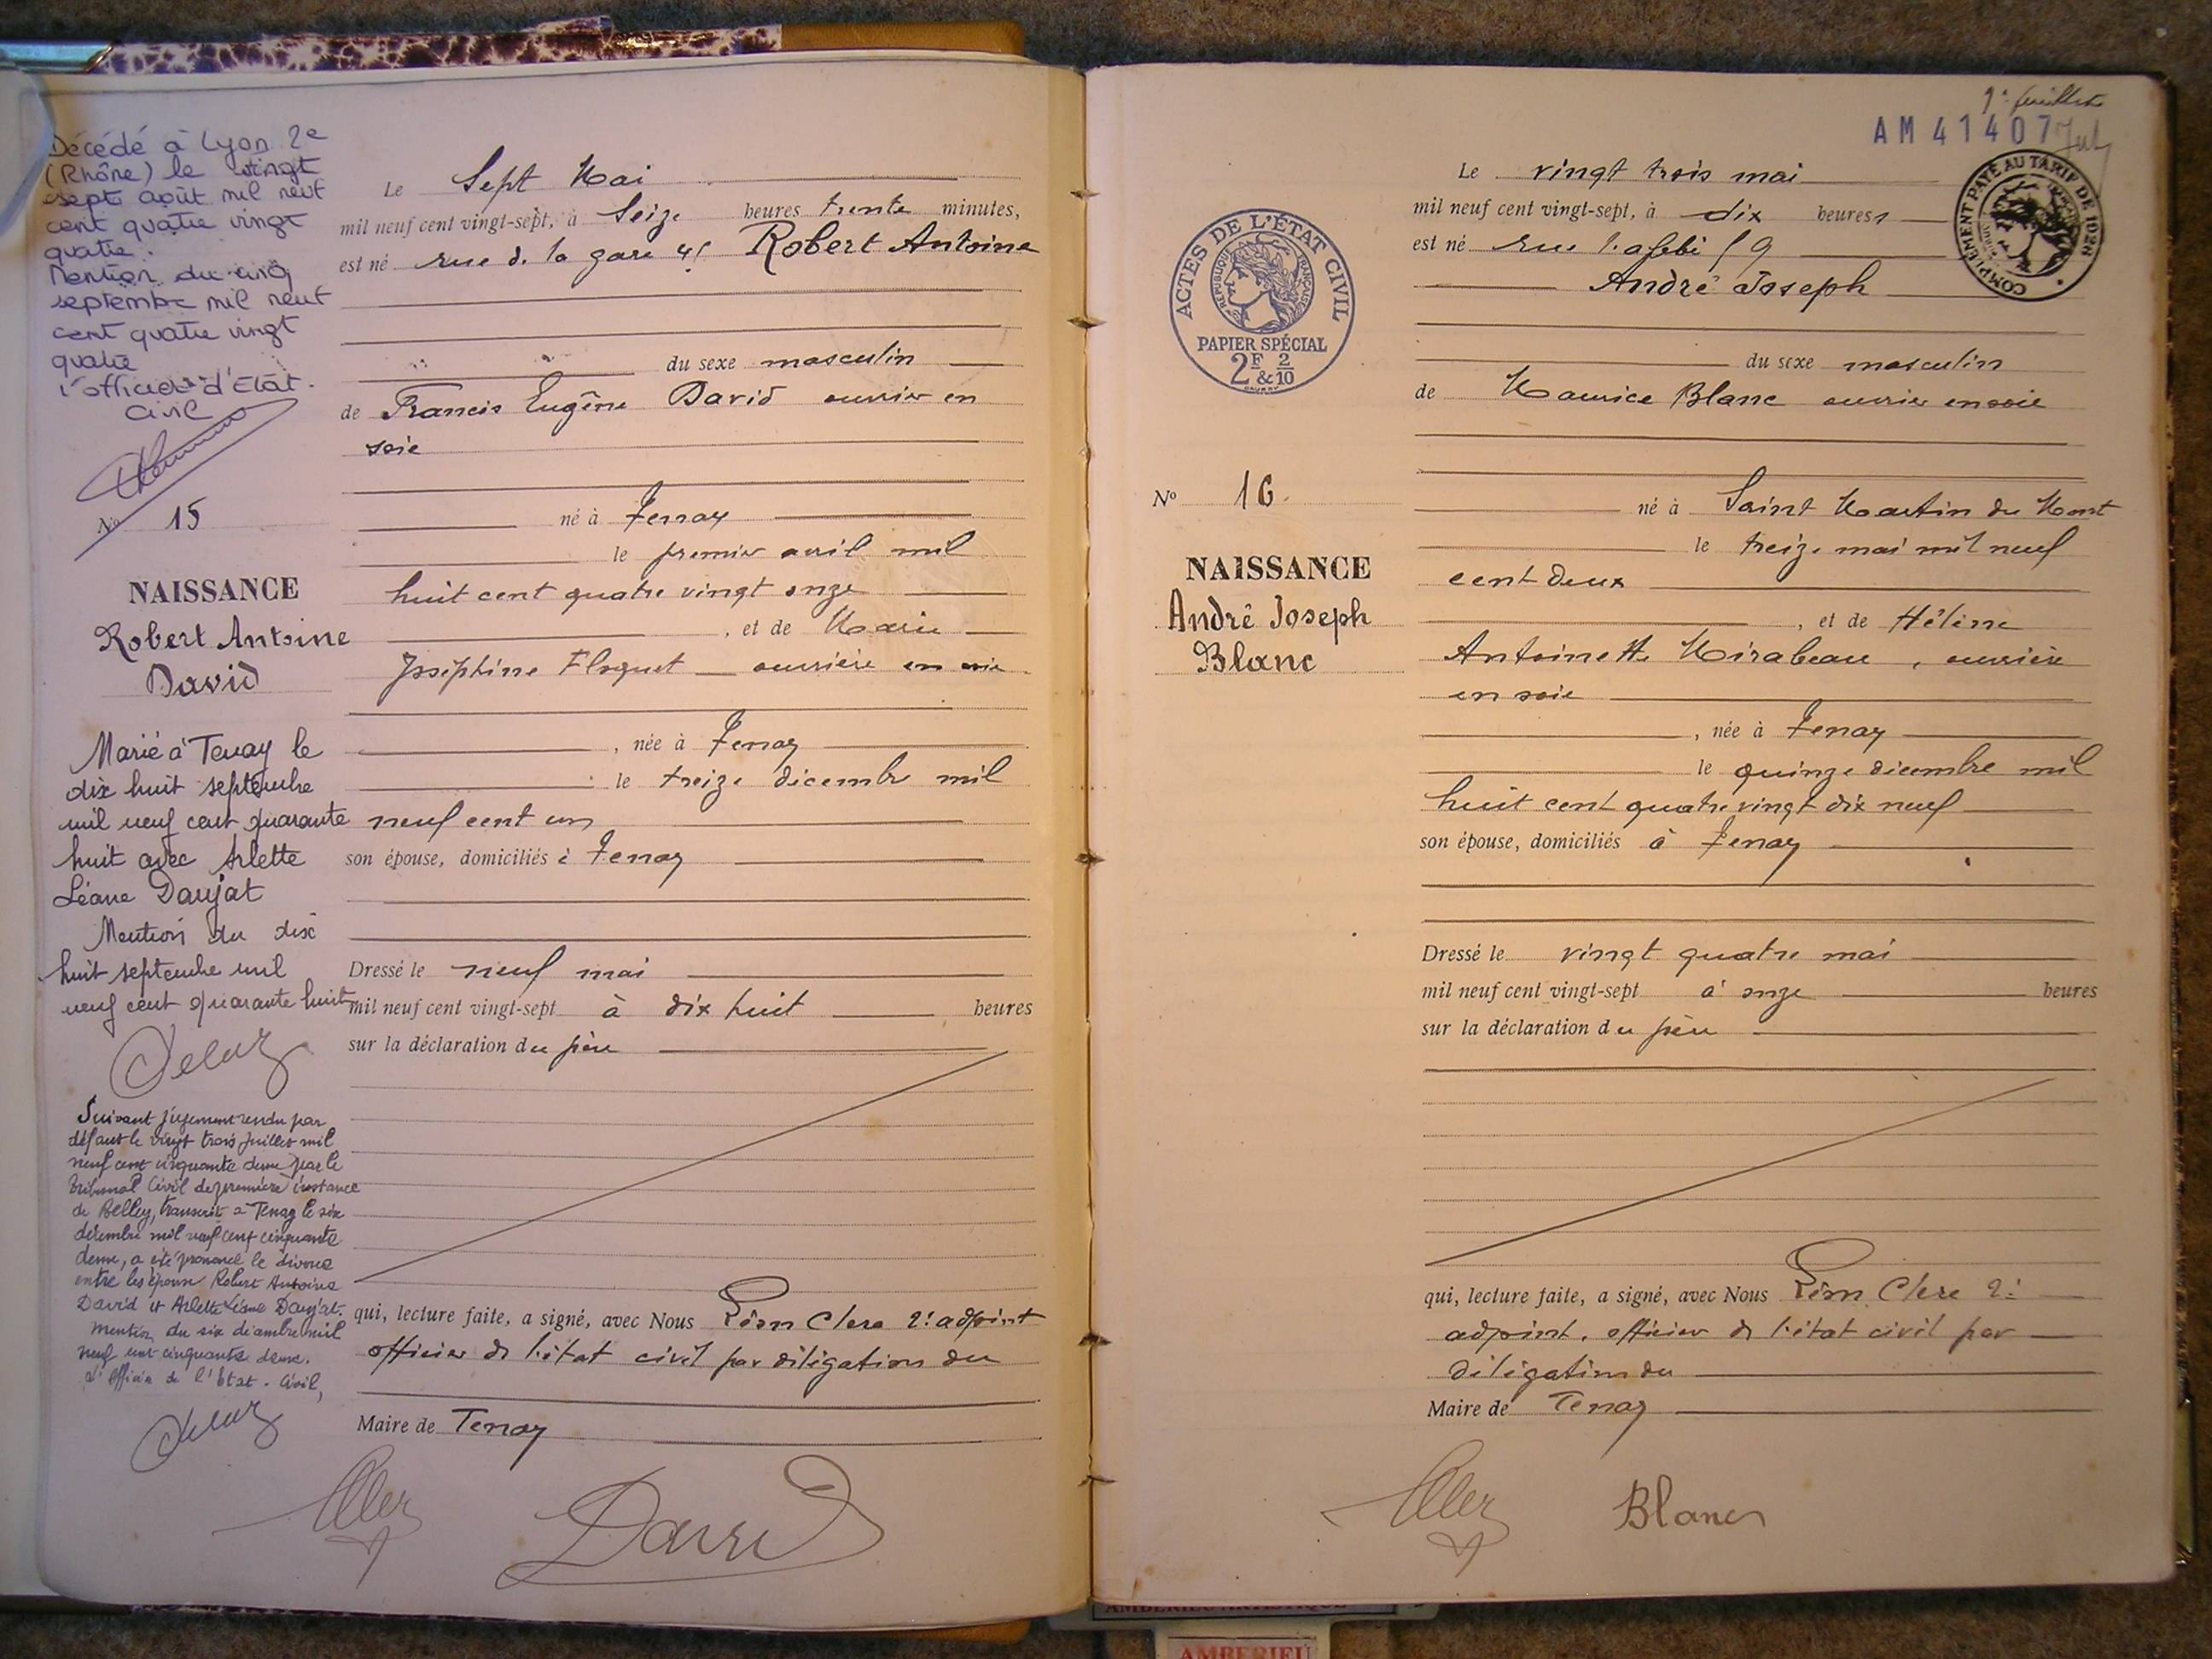 Décédé à Lyon 2e
(Rhône) le vingt
sept août mil neuf
cent quatre vingt
quatre.
Mention du cinq
septembre mil neuf
cent quatre vingt
quatre
l'officier d'Etat.
Civil
No 15
NAISSANCE
Robert Antoine
David
Marié à Tenay le
dix huit septembre
mil neuf cent quarante
huit avec Arlette
Léane Daujat
Mention du dix
huit septembre mil
neuf cent quarante huit
Suivant jugement rendu par
défaut le vingt trois juillet mil
neuf cent cinquante deux par le
tribunal Civil de première instance
de Belley, transcrit à Tenay le six
décembre mil neuf cent cinquante
deux, a été prononcé le divorce
entre les époux Robert Antoine
David et Arlette Léane Daujat.
Mention du six décembre mil
neuf cent cinquante deux.
L'Officier de l'Etat-Civil,
Le Sept Mai
mil neuf cent vingt-sept, à Seize heures trente minutes,
est né rue de la gare Robert Antoine
du sexe masculin
de Francis Eugène David ouvrier en
soie
né à Tenay
le premier avril mil
huit cent quatre vingt onze
, et de Marie
Joséphine Floquet ouvrière en soie
, née à Tenay
le treize décembre mil
neuf cent un
son épouse, domiciliés à Tenay
Dressé le neuf mai
mil neuf cent vingt-sept à dix huit heures
sur la déclaration du père
qui, lecture faite, a signé, avec Nous Léon Clerc 2e adjoint
officier de l'état civil par délégation du
Maire de Tenay
David
1er feuillet
AM 41407
COMPLÉMENT PAYÉ AU TARIF DE 1926
ACTES DE L'ÉTAT CIVIL
RÉPUBLIQUE FRANÇAISE
PAPIER SPÉCIAL
2F & 2/10
No 16
NAISSANCE
André Joseph
Blanc
Le vingt trois mai
mil neuf cent vingt-sept, à dix heures
est né rue
André Joseph
du sexe masculin
de Maurice Blanc ouvrier en soie
né à Saint Martin du Mont
le treize mai mil neuf
cent deux
, et de Hélène
Antoinette Mirabeau, ouvrière
en soie
, née à Tenay
le quinze décembre mil
huit cent quatre vingt dix neuf
son épouse, domiciliés à Tenay
Dressé le vingt quatre mai
mil neuf cent vingt-sept à onze heures
sur la déclaration du père
qui, lecture faite, a signé, avec Nous Léon Clerc 2e
adjoint, officier de l'état civil par
délégation du
Maire de Tenay
Blanc
AMBERIEU ARTISTIQUE
AMBERIEU